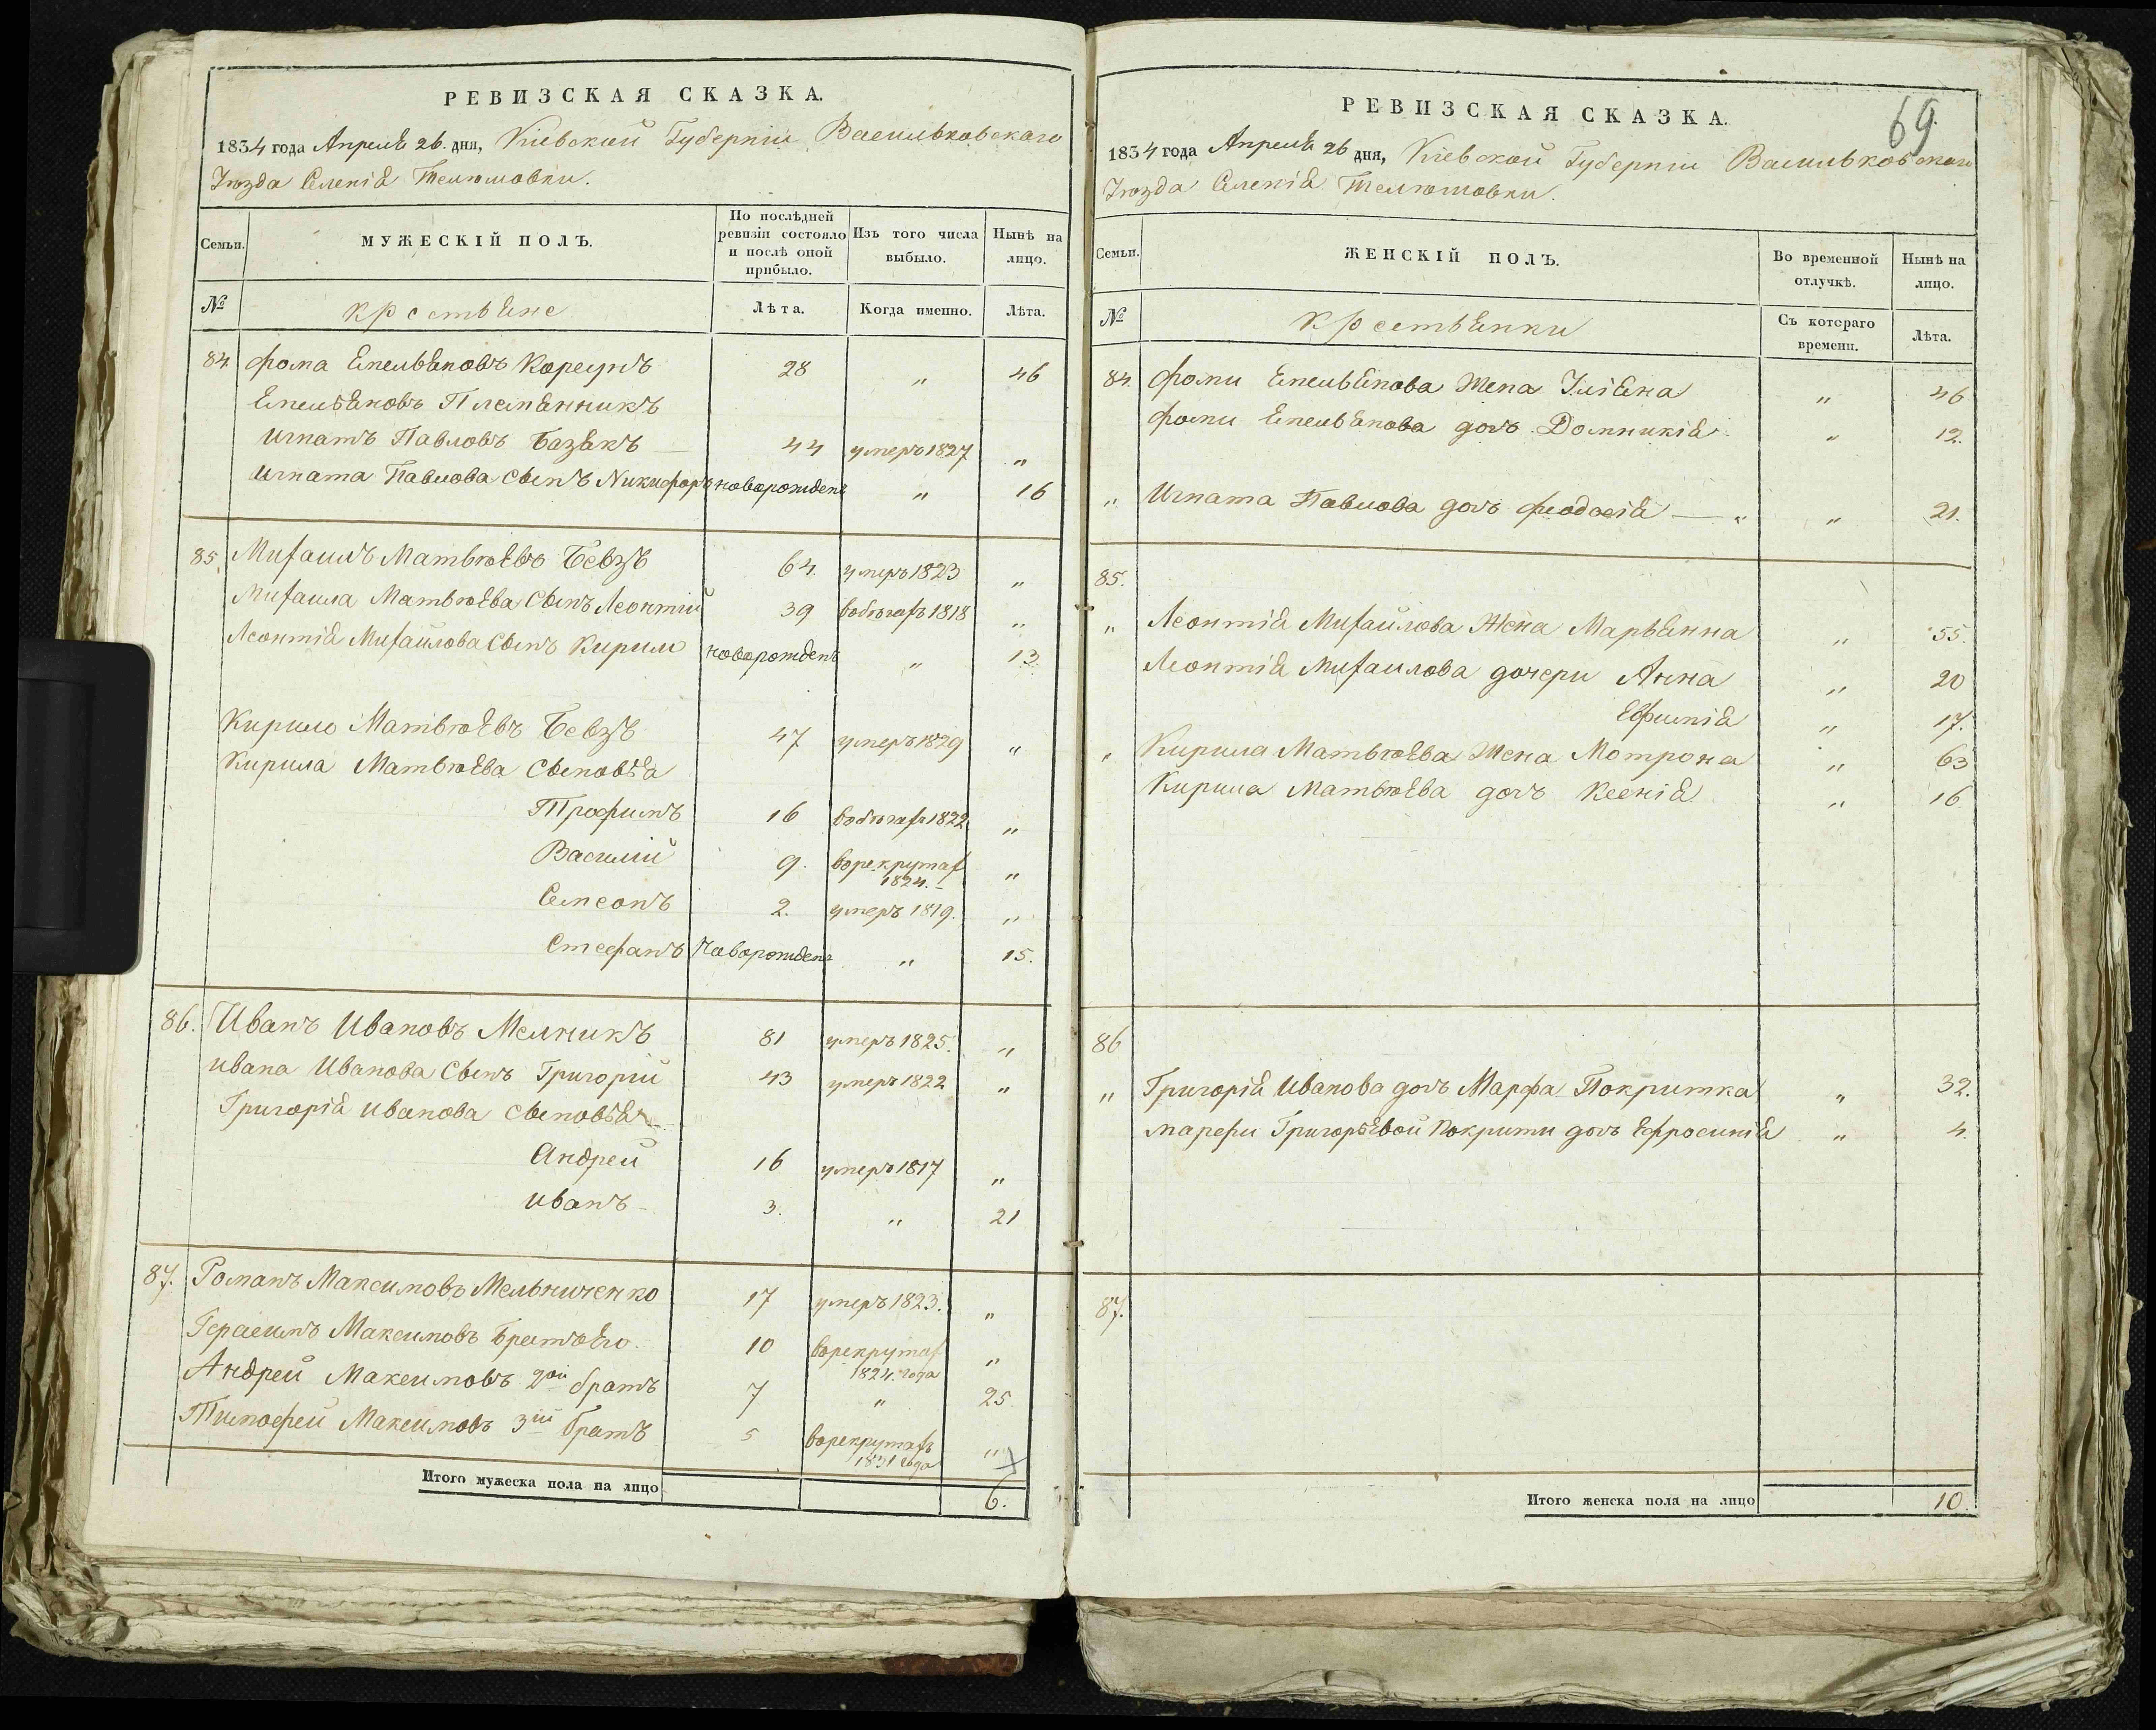 РЕВИЗСКАЯ СКАЗКА.
1834 года Апреля 26. дня, Кіевской Губерніи Васильковского
Уѣзда Селенія Телюшовки.
Семьи.
МУЖЕСКІЙ ПОЛЪ.
По послѣдней ревизіи состояло и послѣ оной прибыло.
Изъ того числа выбыло.
Нынѣ на лицо.
№ крестьяне Лѣта. Когда именно. Лѣта.
84. Фома Емельяновъ Корсунъ 28 „ 46
Емельяновъ Племянникъ
Игнатъ Павловъ Базякъ — 44 умеръ 1827 „
Игната Павлова Сынъ Никифоръ новорожденъ „ 16
85. Михаилъ Матвѣевъ Бевзъ 64. умеръ 1823 „
Михаила Матвѣева Сынъ Леонтій 39 вбѣгахъ 1818 „
Леонтія Михайлова Сынъ Кирило новорожденъ „ 13.
Кирило Матвѣевъ Бевзъ 47 умеръ 1829 „
Кирила Матвѣева Сыновья
Трофимъ 16 вбѣгахъ 1822 „
Василій 9. врекрутах 1824. „
Семеонъ 2. умеръ 1819. „
Стефанъ Новорожденъ „ 15.
86. Иванъ Ивановъ Мелникъ 81 умеръ 1825. „
Ивана Иванова Сынъ Григорій 43 умеръ 1822 „
Григорія Иванова Сыновья
Андрей 16 умеръ 1817 „
Иванъ 3. „ 21
87. Романъ Максимовъ Мельниченко 17 умеръ 1823. „
Герасимъ Максимовъ Братъ Его. 10 врекрутах 1824. года „
Андрей Максимовъ 2ой братъ 7 „ 25
Тимофей Максимовъ 3ій братъ 5 врекрутахъ 1831 года „
Итого мужеска пола на лицо 6.
69
РЕВИЗСКАЯ СКАЗКА.
1834 года Апреля 26 дня, Кіевской Губерніи Васильковского
Уѣзда Селенія Телюшовки.
Семьи.
ЖЕНСКІЙ ПОЛЪ.
Во временной отлучкѣ.
Нынѣ на лицо.
№ крестьянки Съ котораго времени. Лѣта.
84. Фомы Емельянова Жена Уліяна „ 46
Фомы Емельянова дочь Домникія „ 12.
„ Игната Павлова дочь Феодосія — „ „ 21.
85.
„ Леонтія Михайлова Жена Марьянна „ 55.
Леонтія Михаилова дочери Анна „ 20
Ефимія „ 17.
„ Кирила Матвѣева Жена Мотрона „ 63
Кирила Матвѣева дочь Ксенія „ 16
86
„ Григорія Иванова дочь Марфа Покритка „ 32.
марфи Григорьевой Покритки дочь Ефросинія „ 4.
87.
Итого женска пола на лицо 10.